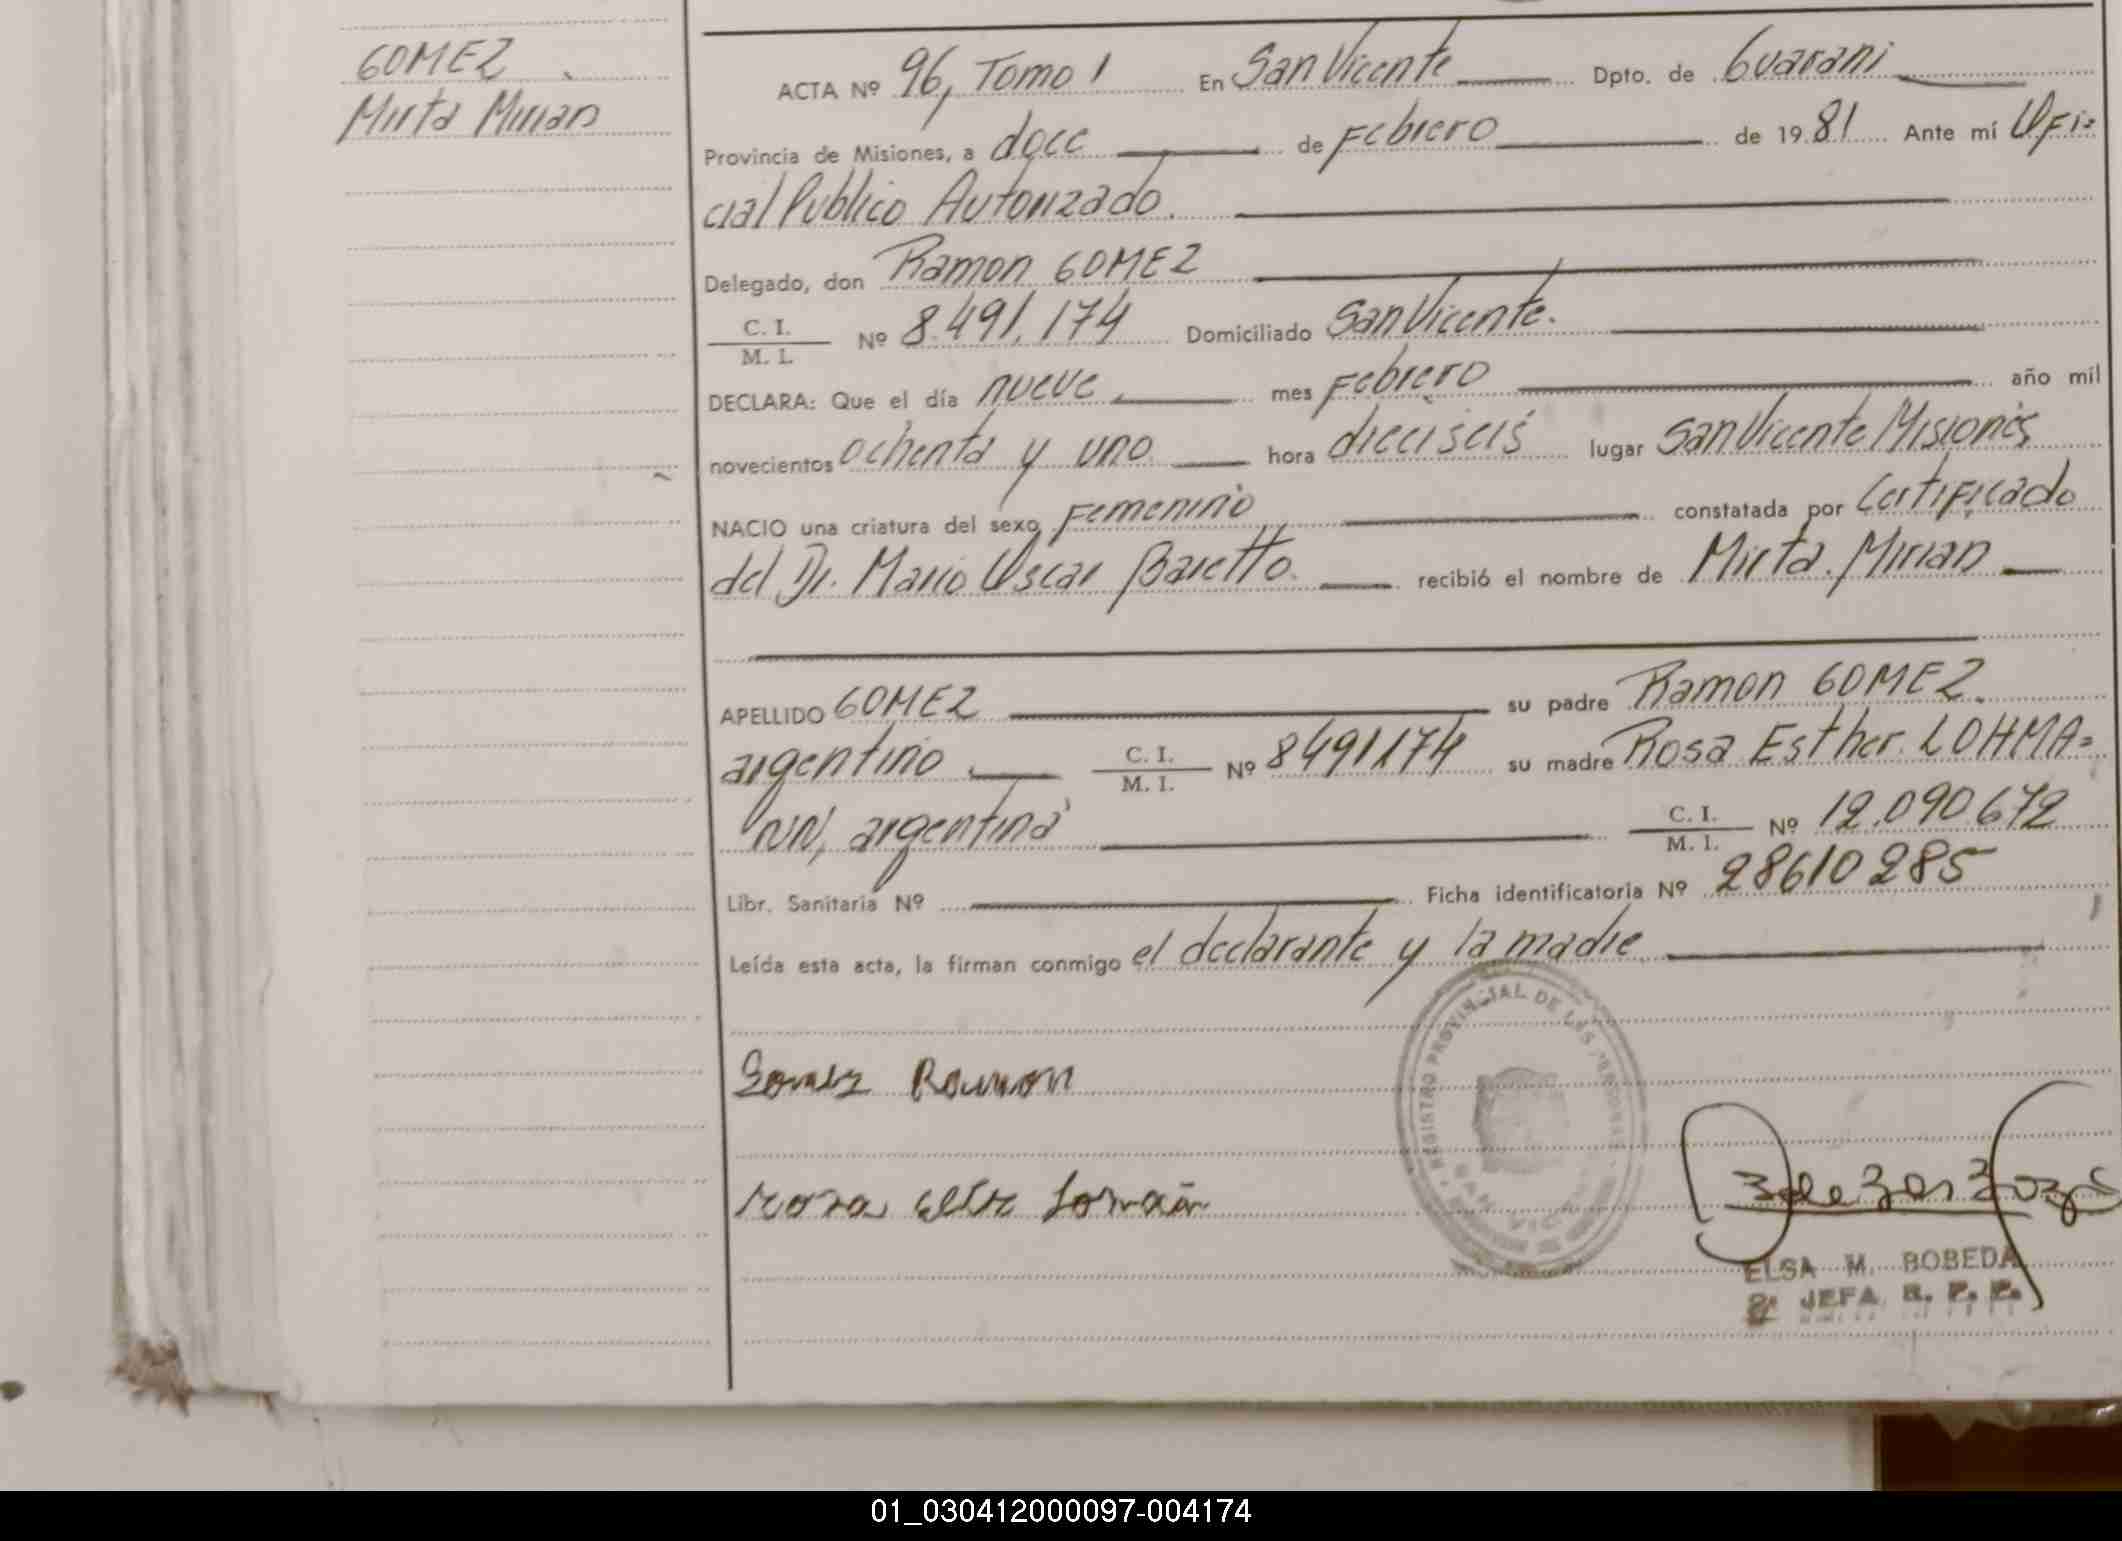 GOMEZ
Mirta Mirian
ACTA Nº 96, Tomo 1 En San Vicente Dpto. de Guarani
Provincia de Misiones, a doce de Febrero de 1981 Ante mí Ofi=
cial Publico Autorizado.
Delegado, don Ramon GOMEZ
C. I. / M. I. Nº 8.491.174 Domiciliado San Vicente.
DECLARA: Que el día nueve mes Febrero año mil
novecientos ochenta y uno hora dieciseis lugar San Vicente Misiones
NACIO una criatura del sexo Femenino constatada por Certificado
del Dr. Mario Oscar Baretto. recibió el nombre de Mirta Mirian
APELLIDO GOMEZ su padre Ramon GOMEZ.
argentino C. I. / M. I. Nº 8491174 su madre Rosa Esther LOHMA=
NN, argentina C. I. / M. I. Nº 12.090.672
Libr. Sanitaria Nº Ficha identificatoria Nº 28610285
Leída esta acta, la firman conmigo el declarante y la madre
REGISTRO PROVINCIAL DE LAS PERSONAS
SAN VICENTE
Gomez Ramon
ELSA M. BOBEDA
JEFA R. P. P.
01_030412000097-004174